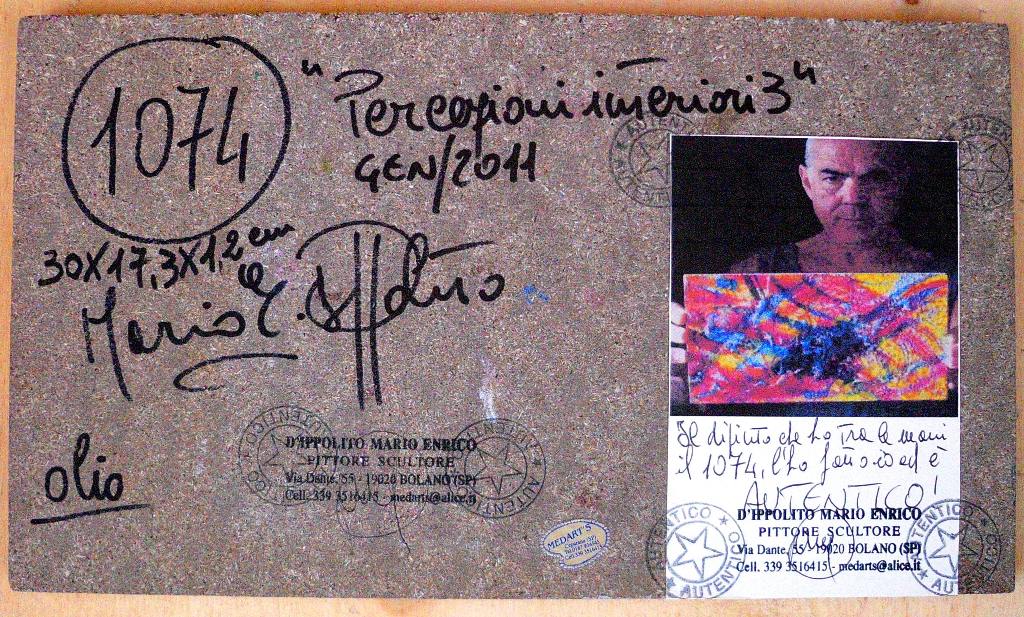 1074
"Percezioni interiori 3"
GEN/2011
30X17,3X1,2 cm
Mario E. D'Ippolito
olio
D'IPPOLITO MARIO ENRICO
PITTORE SCULTORE
Via Dante, 55 - 19020 BOLANO (SP)
Cell. 339 3516415 - medarts@alice.it
AUTENTICO
AUTENTICO
MEDART'S
Il dipinto che ho tra le mani
il 1074, l'ho fatto io ed è
AUTENTICO!
D'IPPOLITO MARIO ENRICO
PITTORE SCULTORE
Via Dante, 55 - 19020 BOLANO (SP)
Cell. 339 3516415 - medarts@alice.it
AUTENTICO
AUTENTICO
AUTENTICO
AUTENTICO